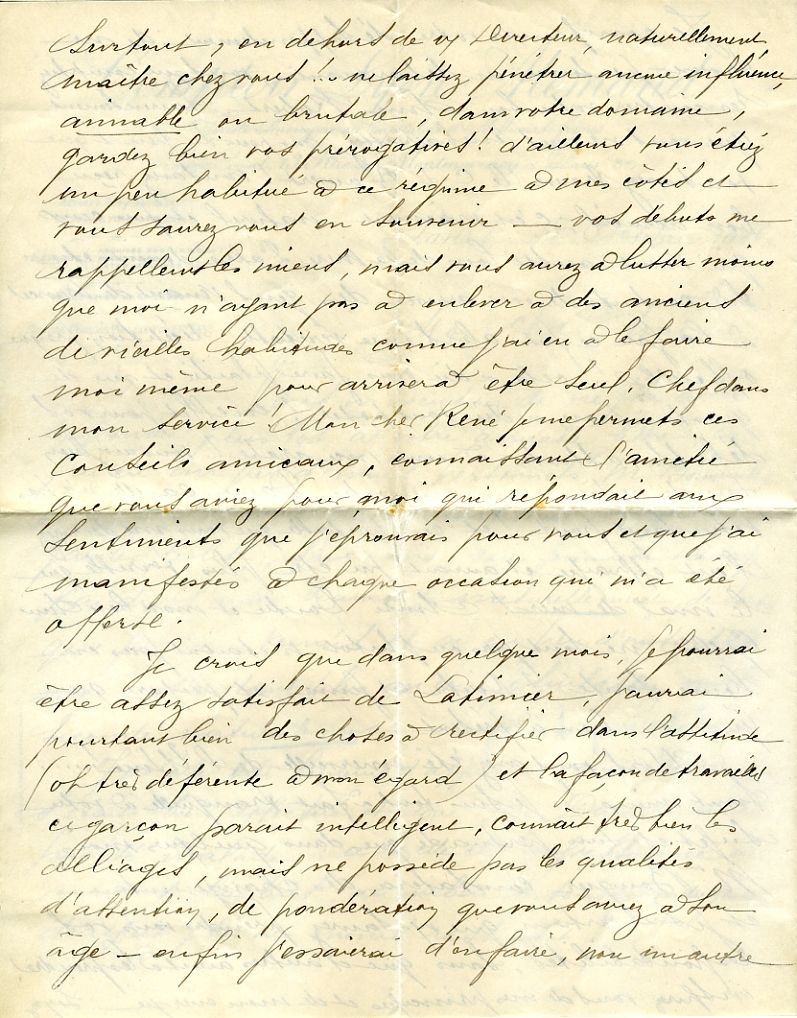 Surtout, en dehors de vx Directeur, naturellement,
maître chez vous !.. ne laissez pénétrer aucune influence,
aimable ou brutale, dans votre domaine,
gardez bien vos prérogatives ! d'ailleurs vous étiez
un peu habitué à ce régime à mes côtés et
vous saurez vous en souvenir — vos débuts me
rappellent les miens, mais vous aurez à lutter moins
que moi n'ayant pas à enlever à des anciens
de vieilles habitudes comme j'ai eu à le faire
moi même pour arriver à être seul, Chef dans
mon service ! Mon cher René je me permets ces
Conseils amicaux, connaissant l'amitié
que vous aviez pour moi qui répondait aux
sentiments que j'éprouvais pour vous et que j'ai
manifestés à chaque occasion qui m'a été
offerte.
Je crois que dans quelque mois, je pourrai
être assez satisfait de Latimier, j'aurai
pourtant bien des choses à rectifier dans l'attitude
(oh très déférente à mon égard) et la façon de travailler
ce garçon parait intelligent, connait très bien les
alliages, mais ne possède pas les qualités
d'attention, de pondération que vous aviez à son
âge — enfin j'essaierai d'en faire, non un autre